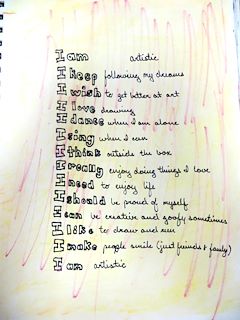 I am artistic
I keep following my dreams
I wish to get better at art
I love drawing
I dance when I am alone
I sing when I can
I think outside the box
I really enjoy doing things I love
I need to enjoy life
I should be proud of myself
I can be creative and goofy sometimes
I like to draw and run
I make people smile (just friends & family)
I am artistic